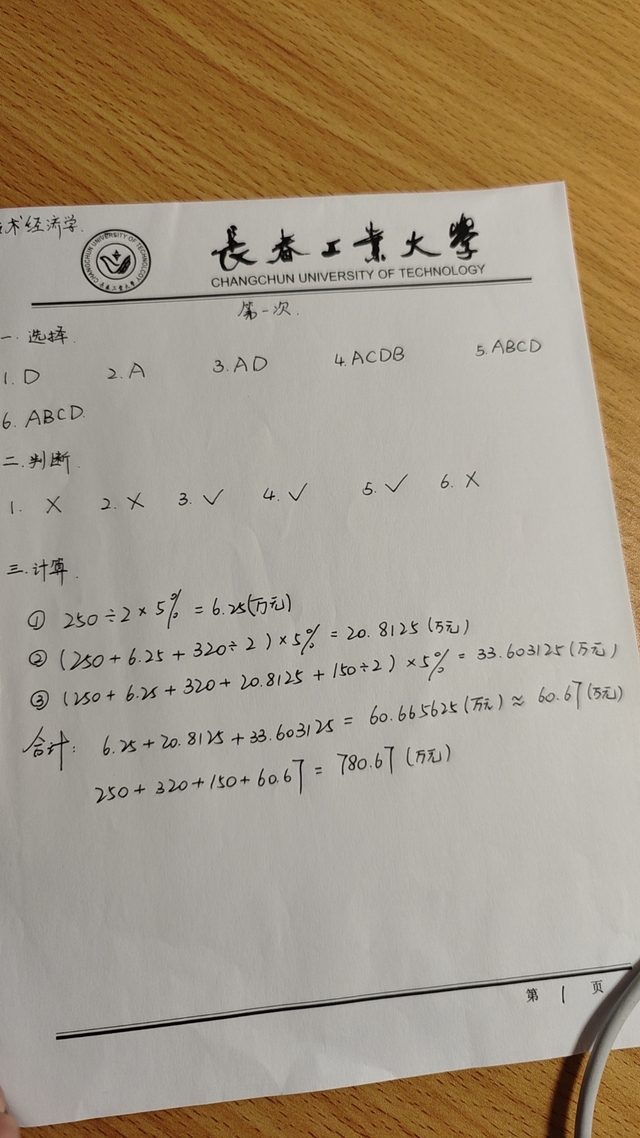 术经济学.
CHANGCHUN UNIVERSITY OF TECHNOLOGY
长春工业大学
長春工業大學
CHANGCHUN UNIVERSITY OF TECHNOLOGY
第一次.
一.选择.
1. D 2. A 3. AD 4. ACDB 5. ABCD
6. ABCD.
二.判断.
1. × 2. × 3. ✓ 4. ✓ 5. ✓ 6. ×
三.计算.
① 250÷2×5% = 6.25(万元)
② (250+6.25+320÷2)×5% = 20.8125(万元)
③ (250+6.25+320+20.8125+150÷2)×5% = 33.603125(万元)
合计: 6.25+20.8125+33.603125 = 60.665625(万元) ≈ 60.67(万元)
250+320+150+60.67 = 780.67(万元)
第 1 页